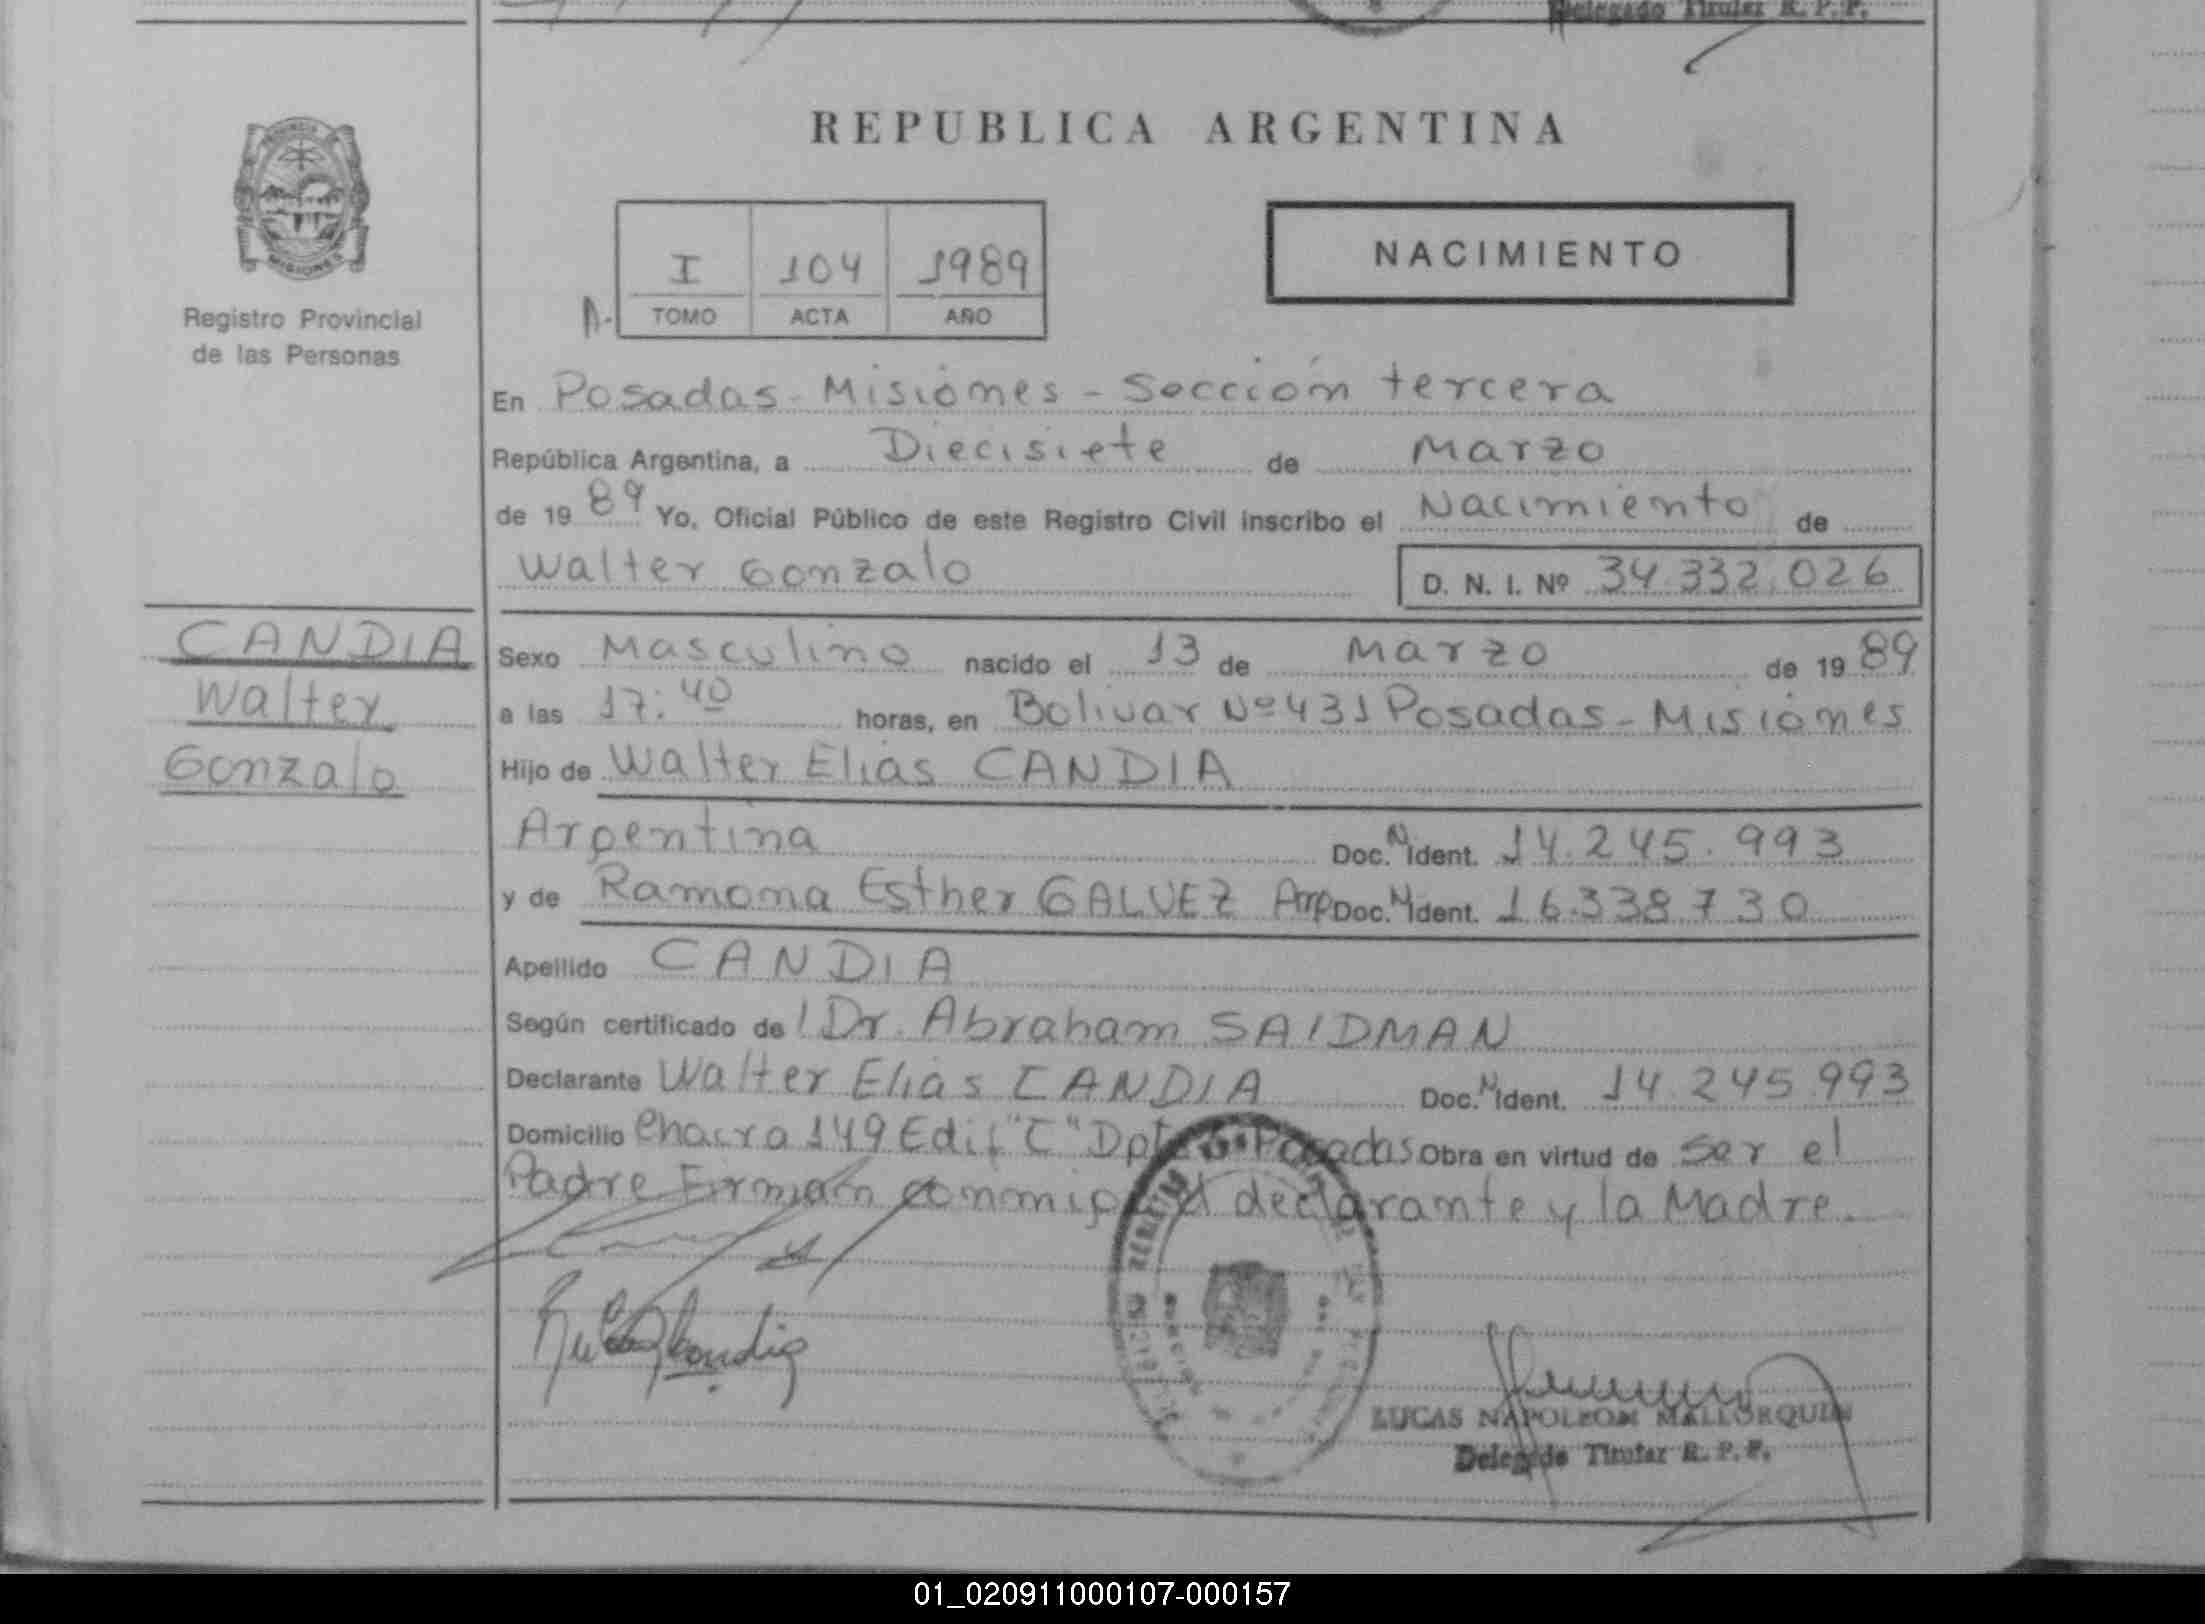 Delegado Titular R. P. P.
REPUBLICA ARGENTINA
PROVINCIA
MISIONES
Registro Provincial
de las Personas
I 104 1989
A- TOMO ACTA AÑO
NACIMIENTO
En Posadas - Misiones - Sección tercera
República Argentina, a Diecisiete de Marzo
de 19 89 Yo, Oficial Público de este Registro Civil inscribo el Nacimiento de
Walter Gonzalo D. N. I. Nº 34.332.026
CANDIA
Walter
Gonzalo
Sexo Masculino nacido el 13 de Marzo de 19 89
a las 17:40 horas, en Bolivar Nº 431 Posadas - Misiones
Hijo de Walter Elias CANDIA
Argentina Doc. N Ident. 14.245.993
y de Ramona Esther GALVEZ Arg Doc. N Ident. 16.338730
Apellido CANDIA
Según certificado de l Dr. Abraham SAIDMAN
Declarante Walter Elias CANDIA Doc. N Ident. 14.245.993
Domicilio Chacra 149 Edif "C" Dpto Posadas Obra en virtud de ser el
Padre Firman conmigo el declarante y la Madre.
LUCAS NAPOLEON MALLORQUIN
Delegado Titular R. P. P.
01_020911000107-000157